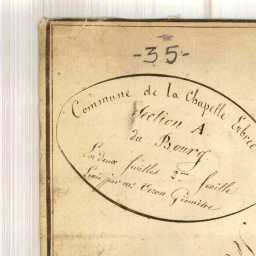 -35-
Commune de la Chapelle Erbrée
Section A
du Bourg
En deux feuilles 2me feuille
Levée par Mr Géomètre